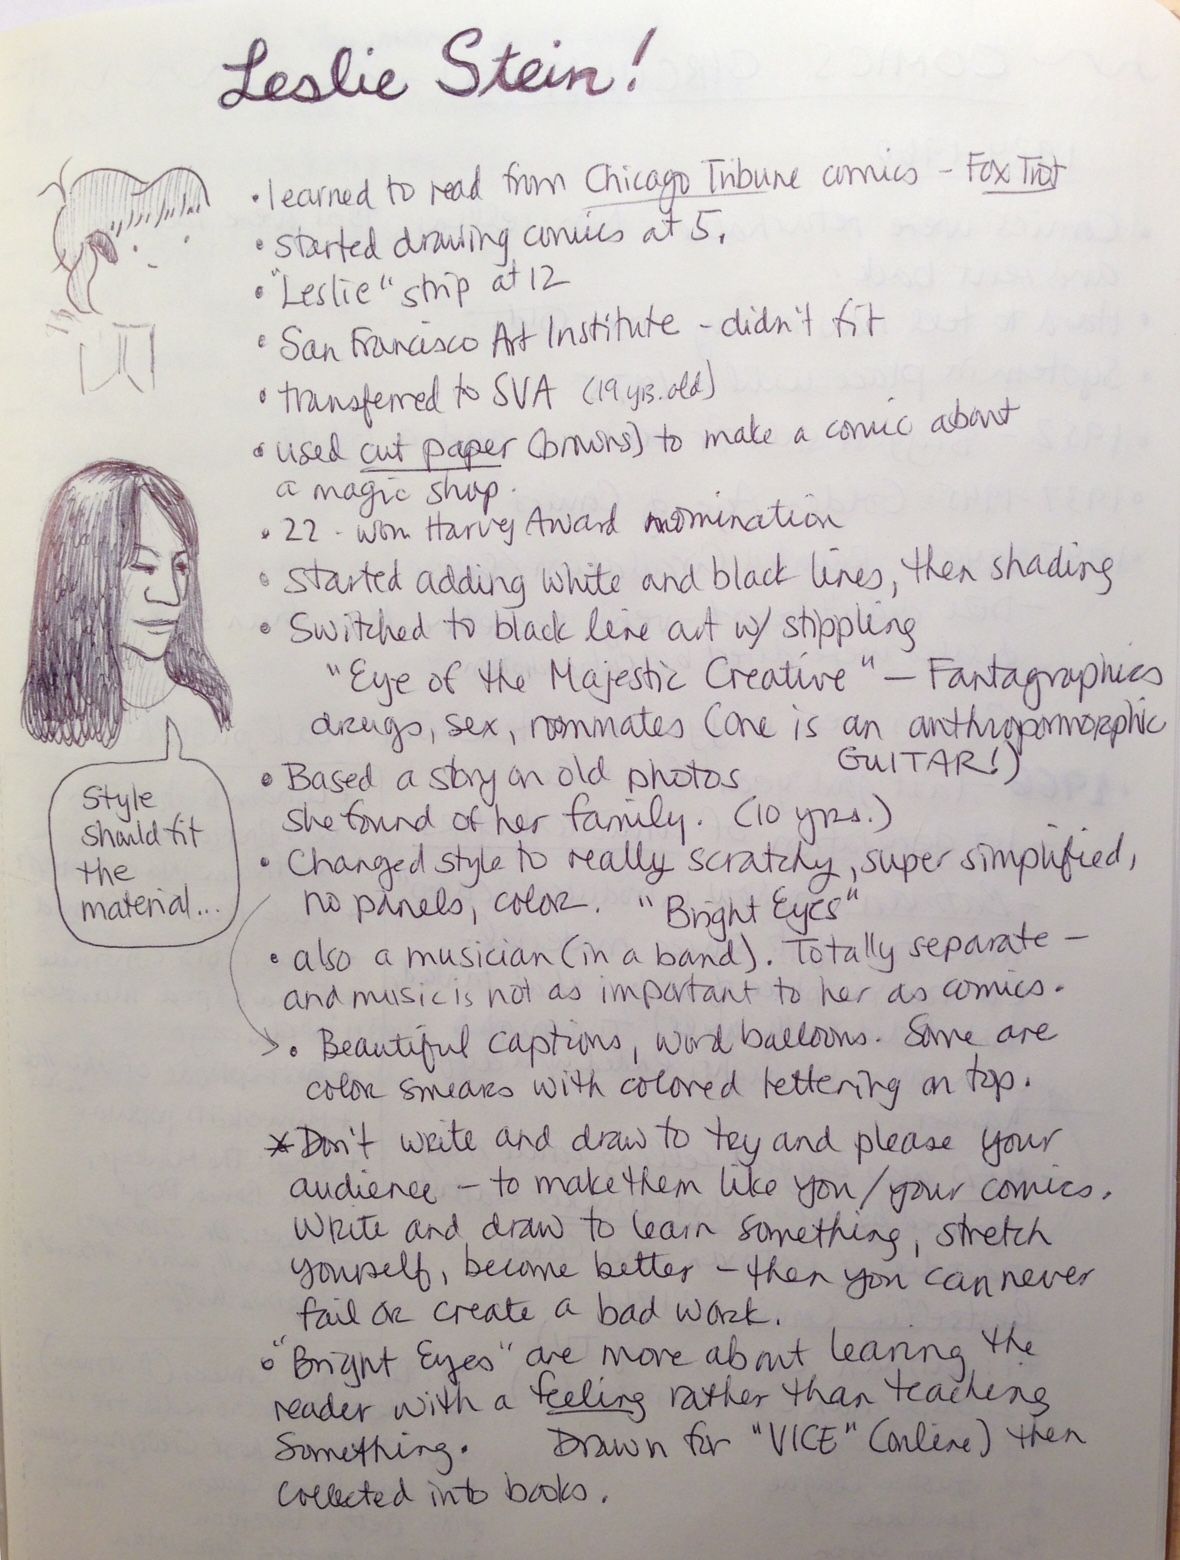 Leslie Stein!
• learned to read from Chicago Tribune comics - Fox Trot
• started drawing comics at 5.
• "Leslie" strip at 12
• San Francisco Art Institute - didn't fit
• transferred to SVA (19 yrs. old)
• used cut paper (browns) to make a comic about
a magic shop.
• 22 - won Harvey Award nomination
• Started adding white and black lines, then shading
• Switched to black line art w/ stippling
"Eye of the Majestic Creative" — Fantagraphics
drugs, sex, roommates (one is an anthropormorphic
GUITAR!)
• Based a story on old photos
she found of her family. (10 yrs.)
• Changed style to really scratchy, super simplified,
no panels, color. "Bright Eyes"
Style
should fit
the
material...
• also a musician (in a band). Totally separate —
and music is not as important to her as comics.
• Beautiful captions, word balloons. Some are
color smears with colored lettering on top.
* Don't write and draw to try and please your
audience — to make them like you/your comics.
Write and draw to learn something, stretch
yourself, become better — then you can never
fail or create a bad work.
• "Bright Eyes" are more about leaving the
reader with a feeling rather than teaching
something. Drawn for "VICE" (online) then
collected into books.